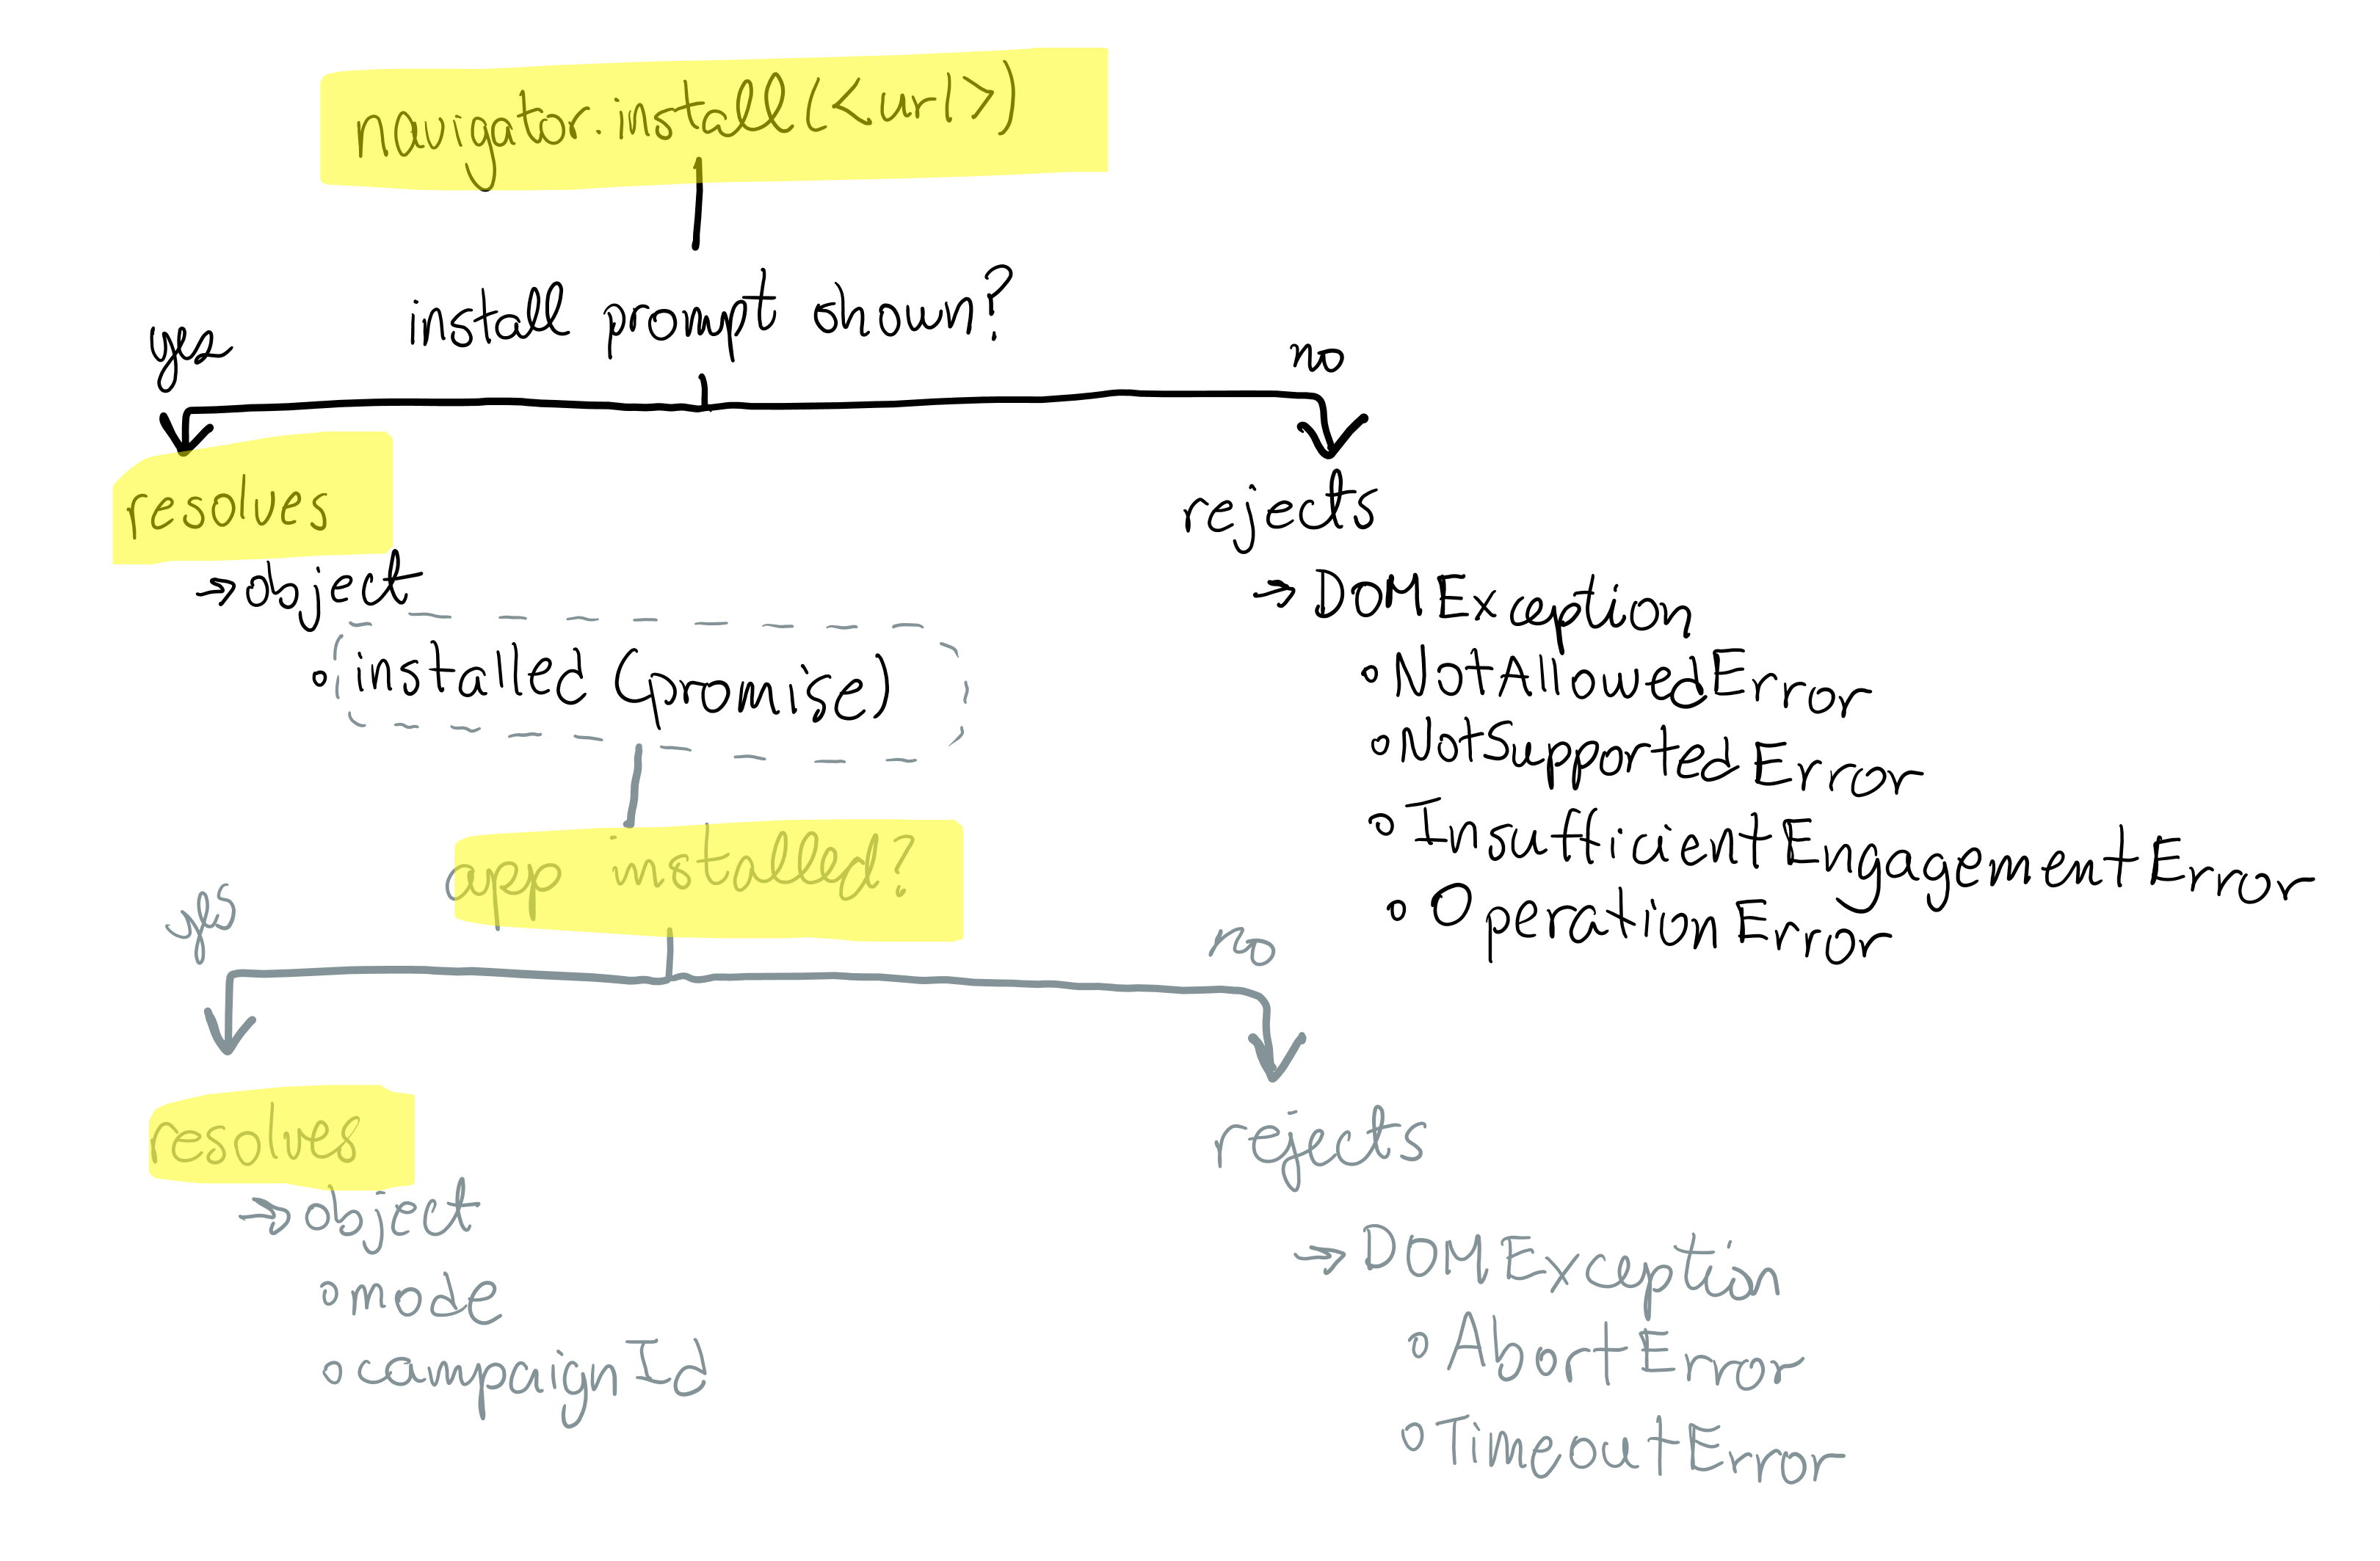 navigator.install(<url>)
install prompt shown?
yes
no
resolves
→ object
◦ installed (promise)
rejects
→ DOMException
◦ NotAllowedError
◦ NotSupportedError
◦ InsufficientEngagementError
◦ OperationError
app installed?
yes
no
resolves
→ object
◦ mode
◦ campaignId
rejects
→ DOMException
◦ AbortError
◦ TimeoutError